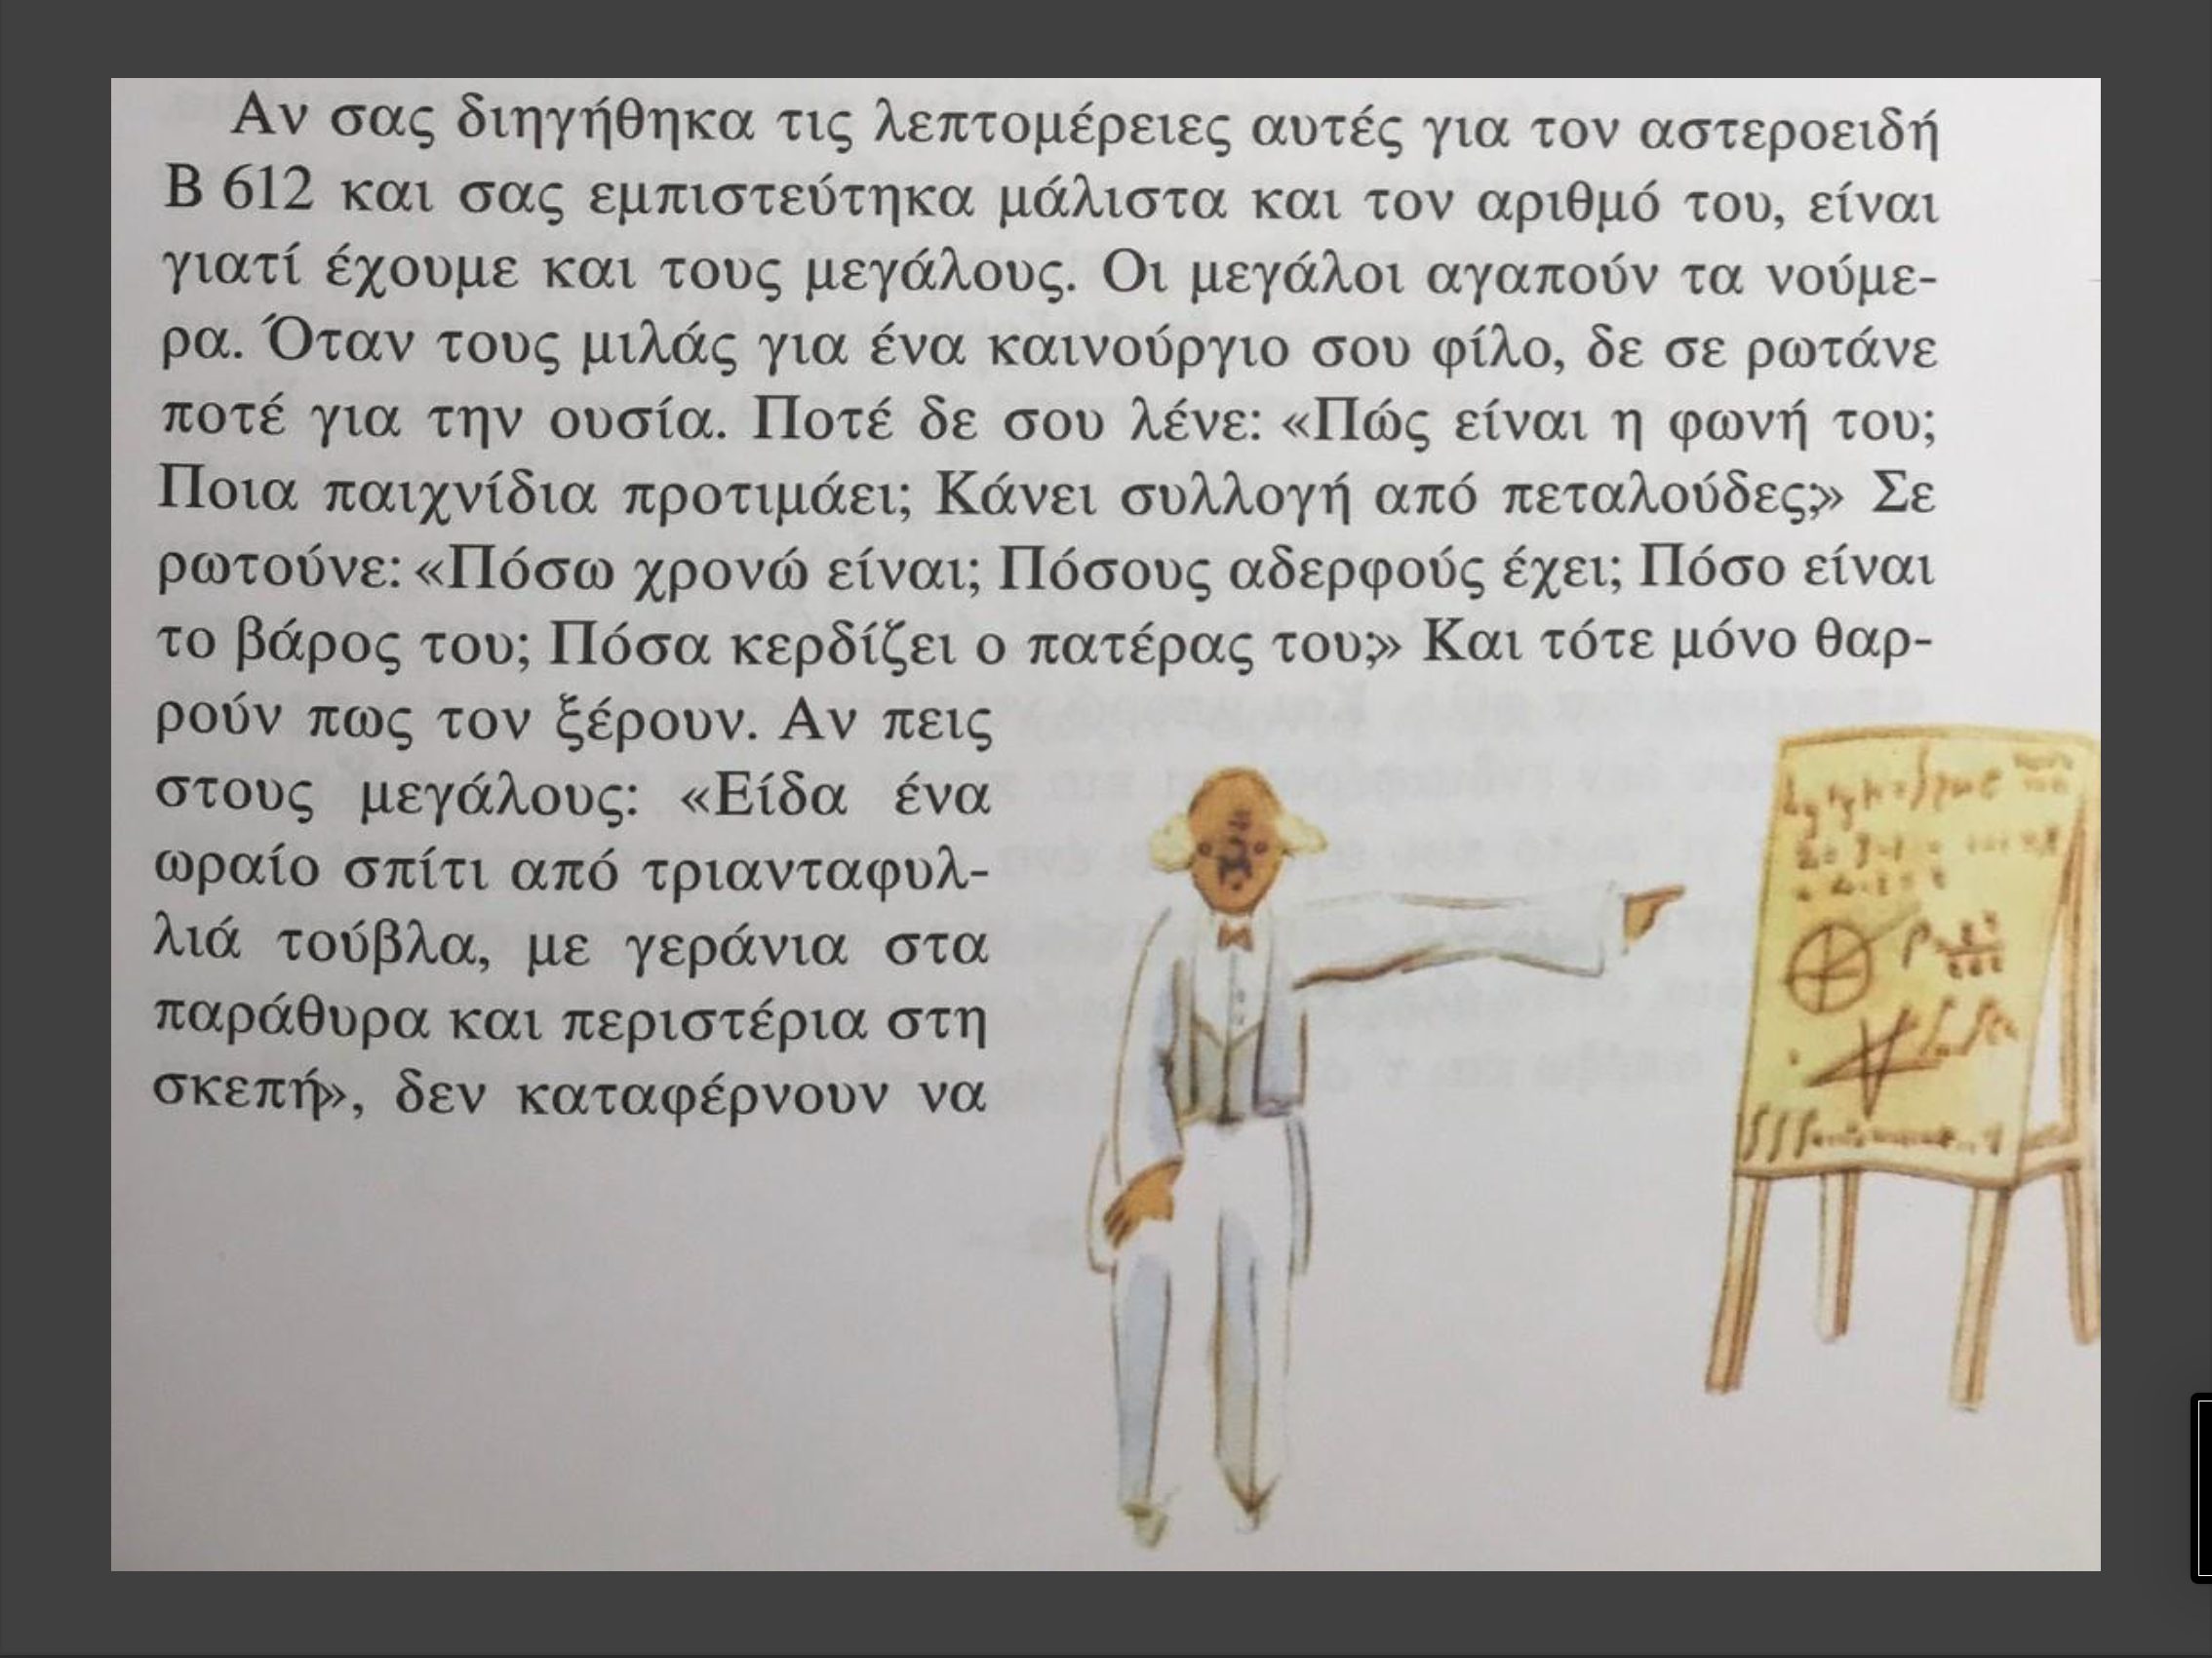 Αν σας διηγήθηκα τις λεπτομέρειες αυτές για τον αστεροειδή
Β 612 και σας εμπιστεύτηκα μάλιστα και τον αριθμό του, είναι
γιατί έχουμε και τους μεγάλους. Οι μεγάλοι αγαπούν τα νούμε-
ρα. Όταν τους μιλάς για ένα καινούργιο σου φίλο, δε σε ρωτάνε
ποτέ για την ουσία. Ποτέ δε σου λένε: «Πώς είναι η φωνή του;
Ποια παιχνίδια προτιμάει; Κάνει συλλογή από πεταλούδες;» Σε
ρωτούνε: «Πόσω χρονώ είναι; Πόσους αδερφούς έχει; Πόσο είναι
το βάρος του; Πόσα κερδίζει ο πατέρας του;» Και τότε μόνο θαρ-
ρούν πως τον ξέρουν. Αν πεις
στους μεγάλους: «Είδα ένα
ωραίο σπίτι από τριανταφυλ-
λιά τούβλα, με γεράνια στα
παράθυρα και περιστέρια στη
σκεπή», δεν καταφέρνουν να